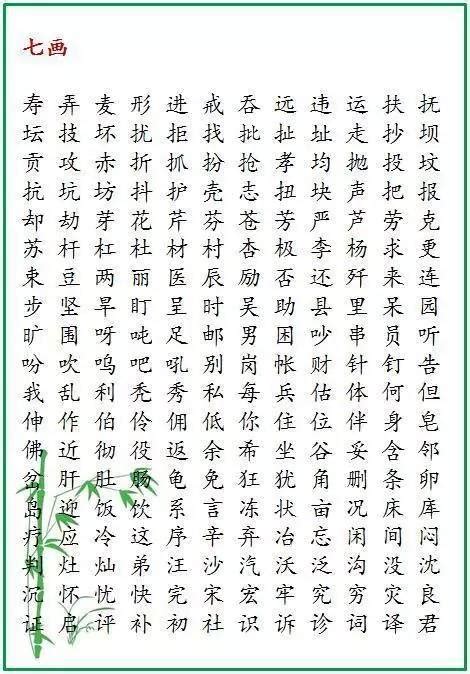 七画
寿 弄 麦 形 进 戒 吞 远 违 运 扶 抚
坛 技 坏 扰 拒 找 批 扯 址 走 抄 坝
贡 攻 赤 折 抓 扮 抢 孝 均 抛 投 坟
抗 坑 坊 抖 护 壳 志 扭 块 声 把 报
却 劫 芽 花 芹 芬 苍 芳 严 芦 劳 克
苏 杆 杠 杜 材 村 杏 极 李 杨 求 更
束 豆 两 丽 医 辰 励 否 还 歼 来 连
步 坚 旱 盯 呈 时 吴 助 县 里 呆 园
旷 围 呀 吨 足 邮 男 困 吵 串 员 听
吩 吹 呜 吧 吼 别 岗 帐 财 针 钉 告
我 乱 利 秃 秀 私 每 兵 估 体 何 但
伸 作 伯 伶 佣 低 你 住 位 伴 身 皂
佛 近 彻 役 返 余 希 坐 谷 妥 含 邻
岔 肝 肚 肠 龟 免 狂 犹 角 删 条 卵
岛 迎 饭 饮 系 言 冻 状 亩 况 床 库
疗 应 冷 这 序 辛 弃 冶 忘 闲 间 闷
判 灶 灿 弟 汪 沙 汽 沃 泛 沟 没 沈
沉 怀 忧 快 完 宋 宏 牢 究 穷 灾 良
证 启 评 补 初 社 识 诉 诊 词 译 君